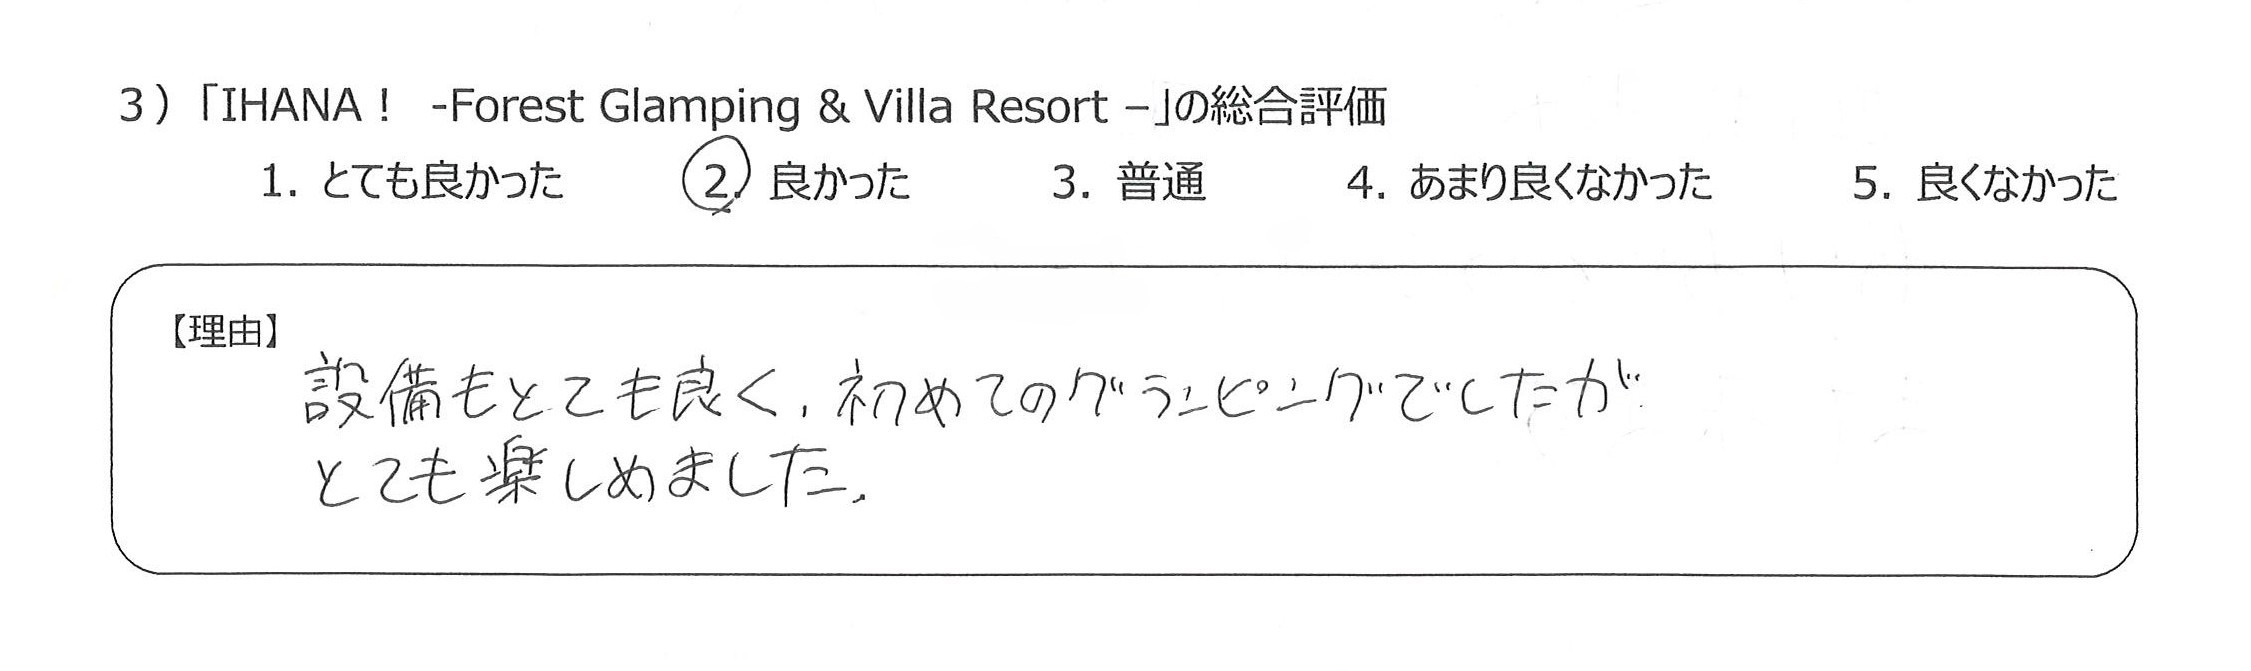 3）「IHANA！ -Forest Glamping & Villa Resort –」の総合評価
1. とても良かった 2. 良かった 3. 普通 4. あまり良くなかった 5. 良くなかった
【理由】
設備もとても良く、初めてのグランピングでしたが
とても楽しめました。